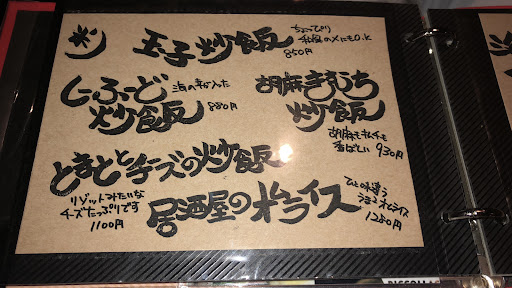 米
玉子炒飯
ちょっぴり
和風の〆にもO.K
850円
しーふーど
炒飯
海の幸入った
880円
胡麻きむち
炒飯
胡麻もキムチも
香ばしい 930円
とまととチーズの炒飯
リゾットみたいな
チーズたっぷりです
1100円
居酒屋のオムライス
ひと味違う
オムライス
1280円